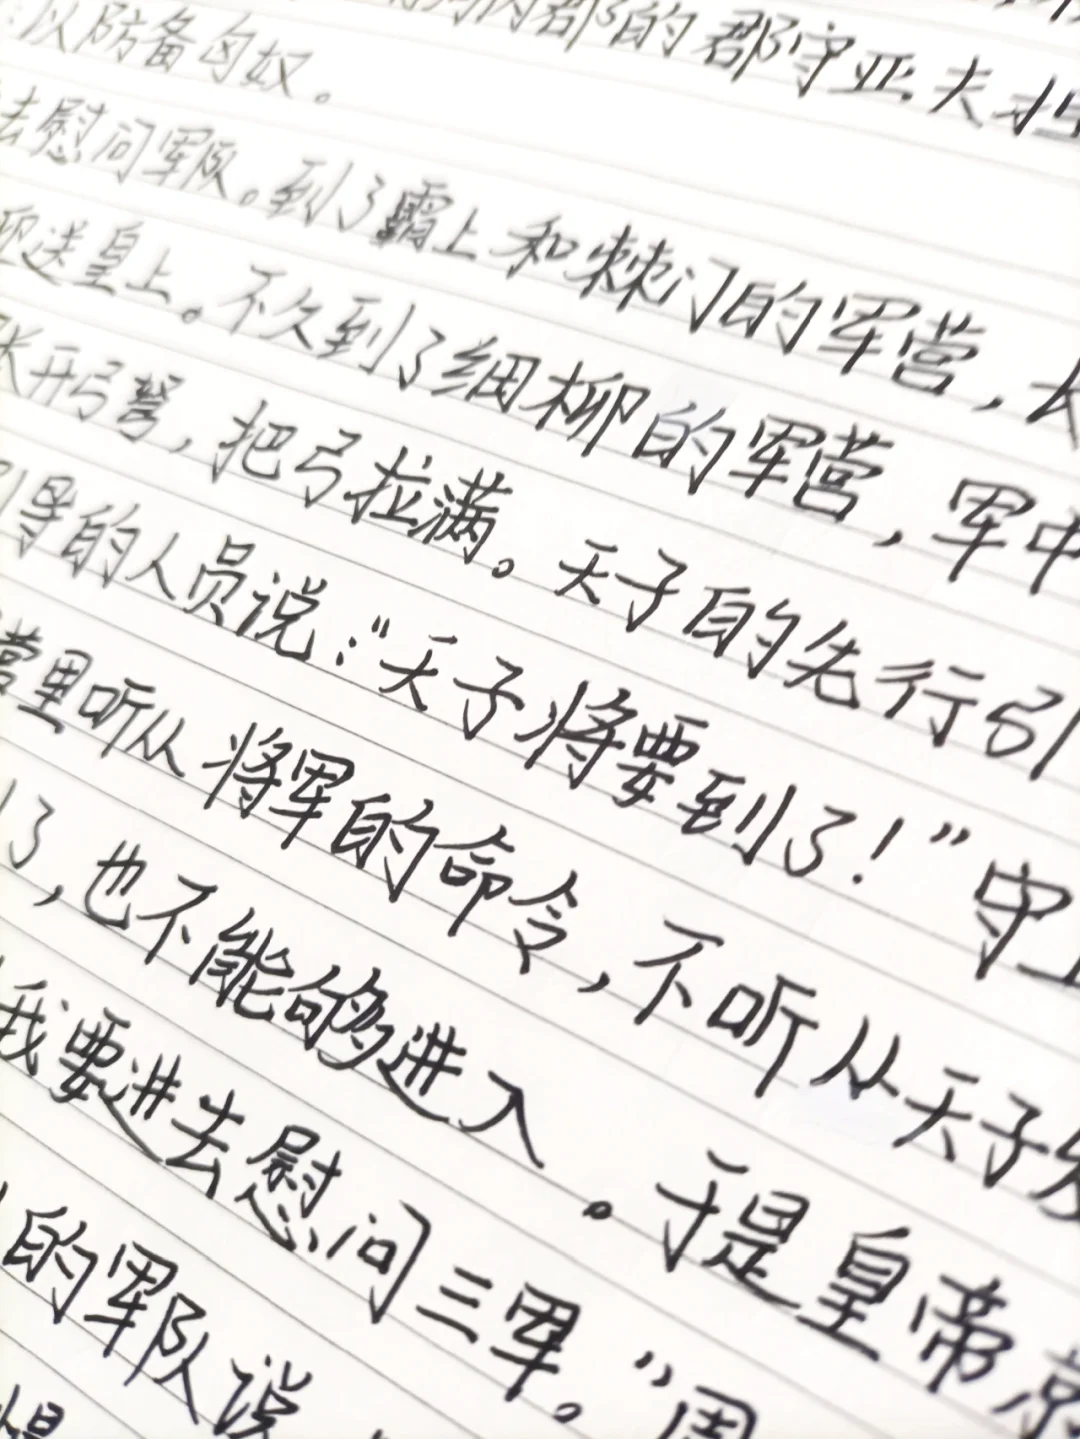 郡的郡守亚夫
以防备匈奴。
去慰问军队。到了霸上和棘门的军营,
迎送皇上。不久到了细柳的军营,军中
张开弓弩,把弓拉满。天子的先行引
引导的人员说:“天子将要到了!”守
营里听从将军的命令,不听从天子
了,也不能够进入。于是皇帝
我要进去慰问三军。”周
的军队说